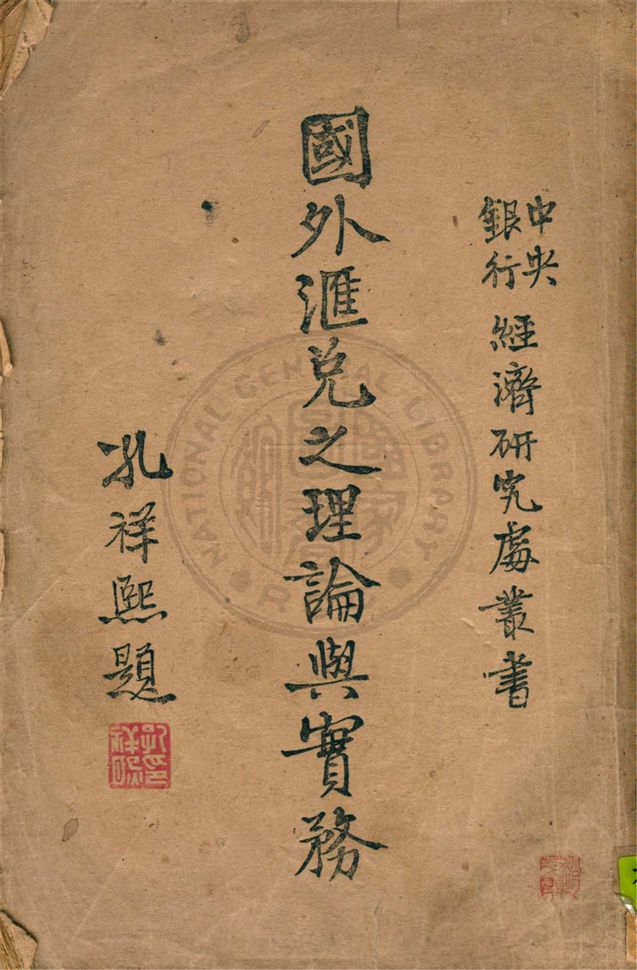 中央銀行 經濟研究處叢書
國外滙兌之理論與實務
孔祥熙題
NATIONAL CENTRAL LIBRARY